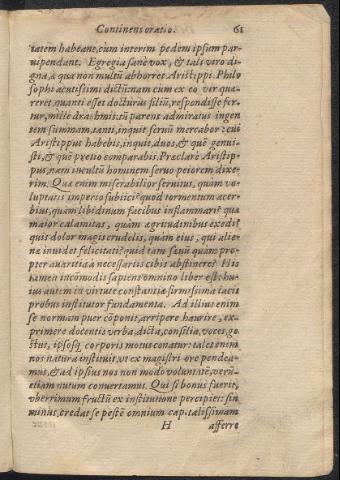 Continens oratio. 61
tatem habeant, cum interim pedem ipsum par-
uipendant. Egregia sanè vox, & tali viro di-
gna, a qua non multũ abhorret Aristippi. Philo
sophi acutissimi dictũ: nam cum ex eo vir quæ-
reret, quanti esset docturus filiũ, respondisse fer-
tur, mille drachmis: tũ parens admiratus ingen
tem summam, tanti, inquit seruũ mercabor: cui
Aristippus habebis, inquit, duos, & quẽ genui-
sti, & quẽ pretio comparabis. Præclarè Aristip-
pus, nam incultũ hominem seruo peiorem dixe-
rim. Quæ enim miserabilior seruitus, quàm vo-
luptatis imperio subiici? quod tormentum acer-
bius, quàm libidinum facibus inflammari? quæ
maior calamitas, quàm ægritudinibus exedi?
quis dolor magis crudelis, quàm eius, qui alie-
næ inuidet felicitati? quid tam sæuũ quàm pro-
pter auaritiã a necessariis cibis abstinere? His
tamen incõmodis sapiens omnino liber est: hu-
ius autem in virtute constantiæ firmissima iacit
probus institutor fundamenta. Ad illius enim
se normam puer cõponit, arripere haurire, ex-
primere docentis verba, dicta, consilia, voces, ge-
stus, ipsosq́; corporis motus conatur: tales enim
nos natura instituit, vt ex magistri ore pendea-
mus, & ad ipsius nos non modo voluntatẽ, verũ-
etiam nutum conuertamus. Qui si bonus fuerit,
vberrimum fructũ ex institutione percipiet: sin
minus, credat se pestẽ omnium capitalissimam
H afferre